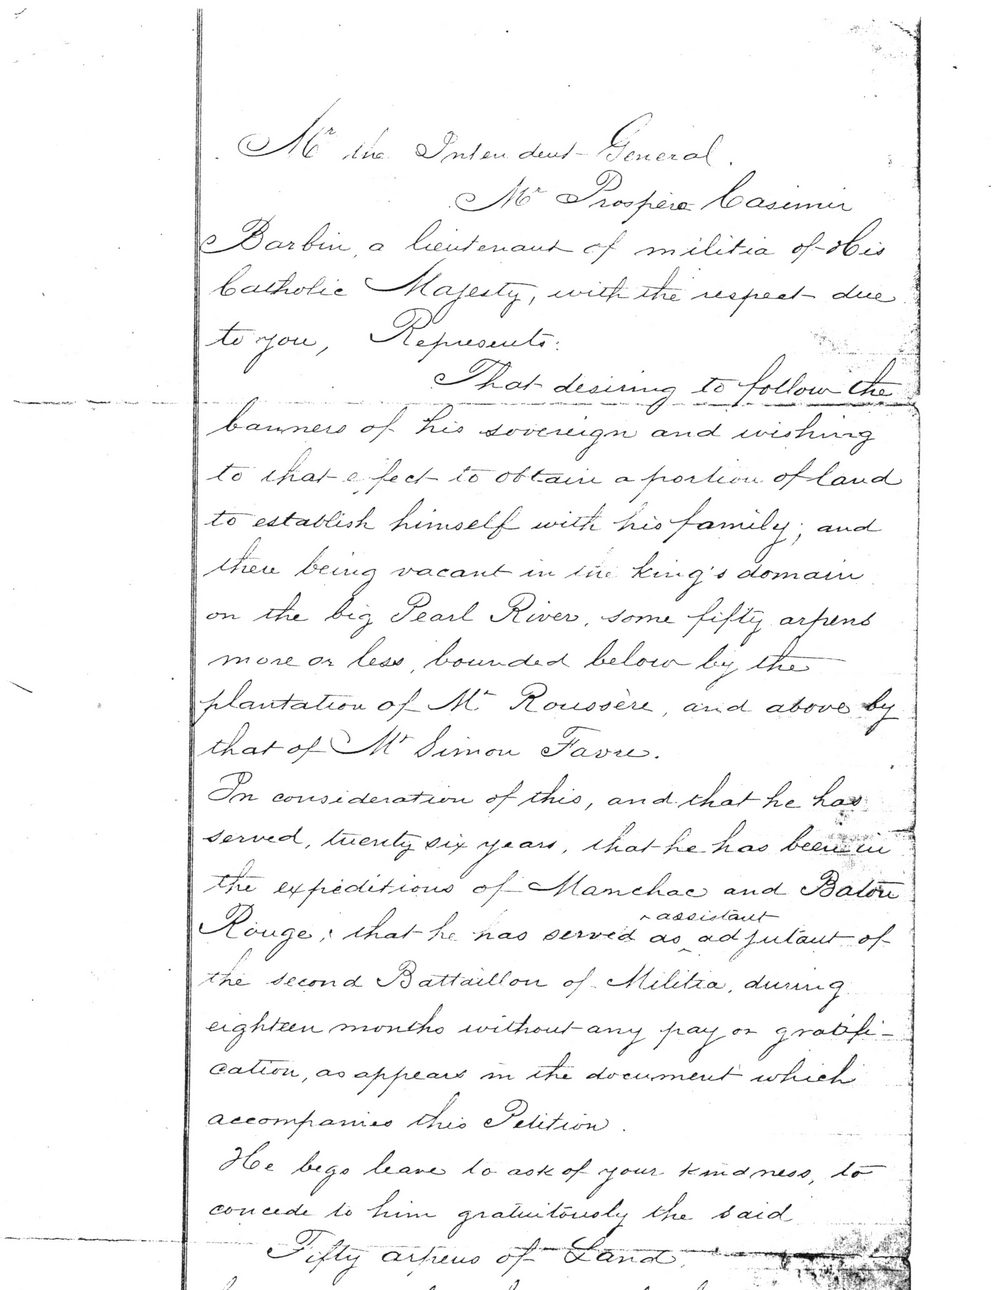 Mr the Intendent General.
Mr Prospère Casimir
Barbin, a lieutenant of militia of His
Catholic Majesty, with the respect due
to you, Represents:
That desiring to follow the
banners of his sovereign and wishing
to that effect to obtain a portion of land
to establish himself with his family; and
there being vacant in the king's domain
on the big Pearl River, some fifty arpens
more or less, bounded below by the
plantation of Mr Roussère, and above by
that of Mr Simon Favre.
In consideration of this, and that he has
served, twenty six years, that he has been in
the expeditions of Manchac and Baton
assistant
Rouge; that he has served as adjutant of
the second Battaillon of Militia, during
eighteen months without any pay or gratifi-
cation, as appears in the document which
accompanies this Petition.
He begs leave to ask of your kindness, to
concede to him gratuitously the said
Fifty arpens of Land.